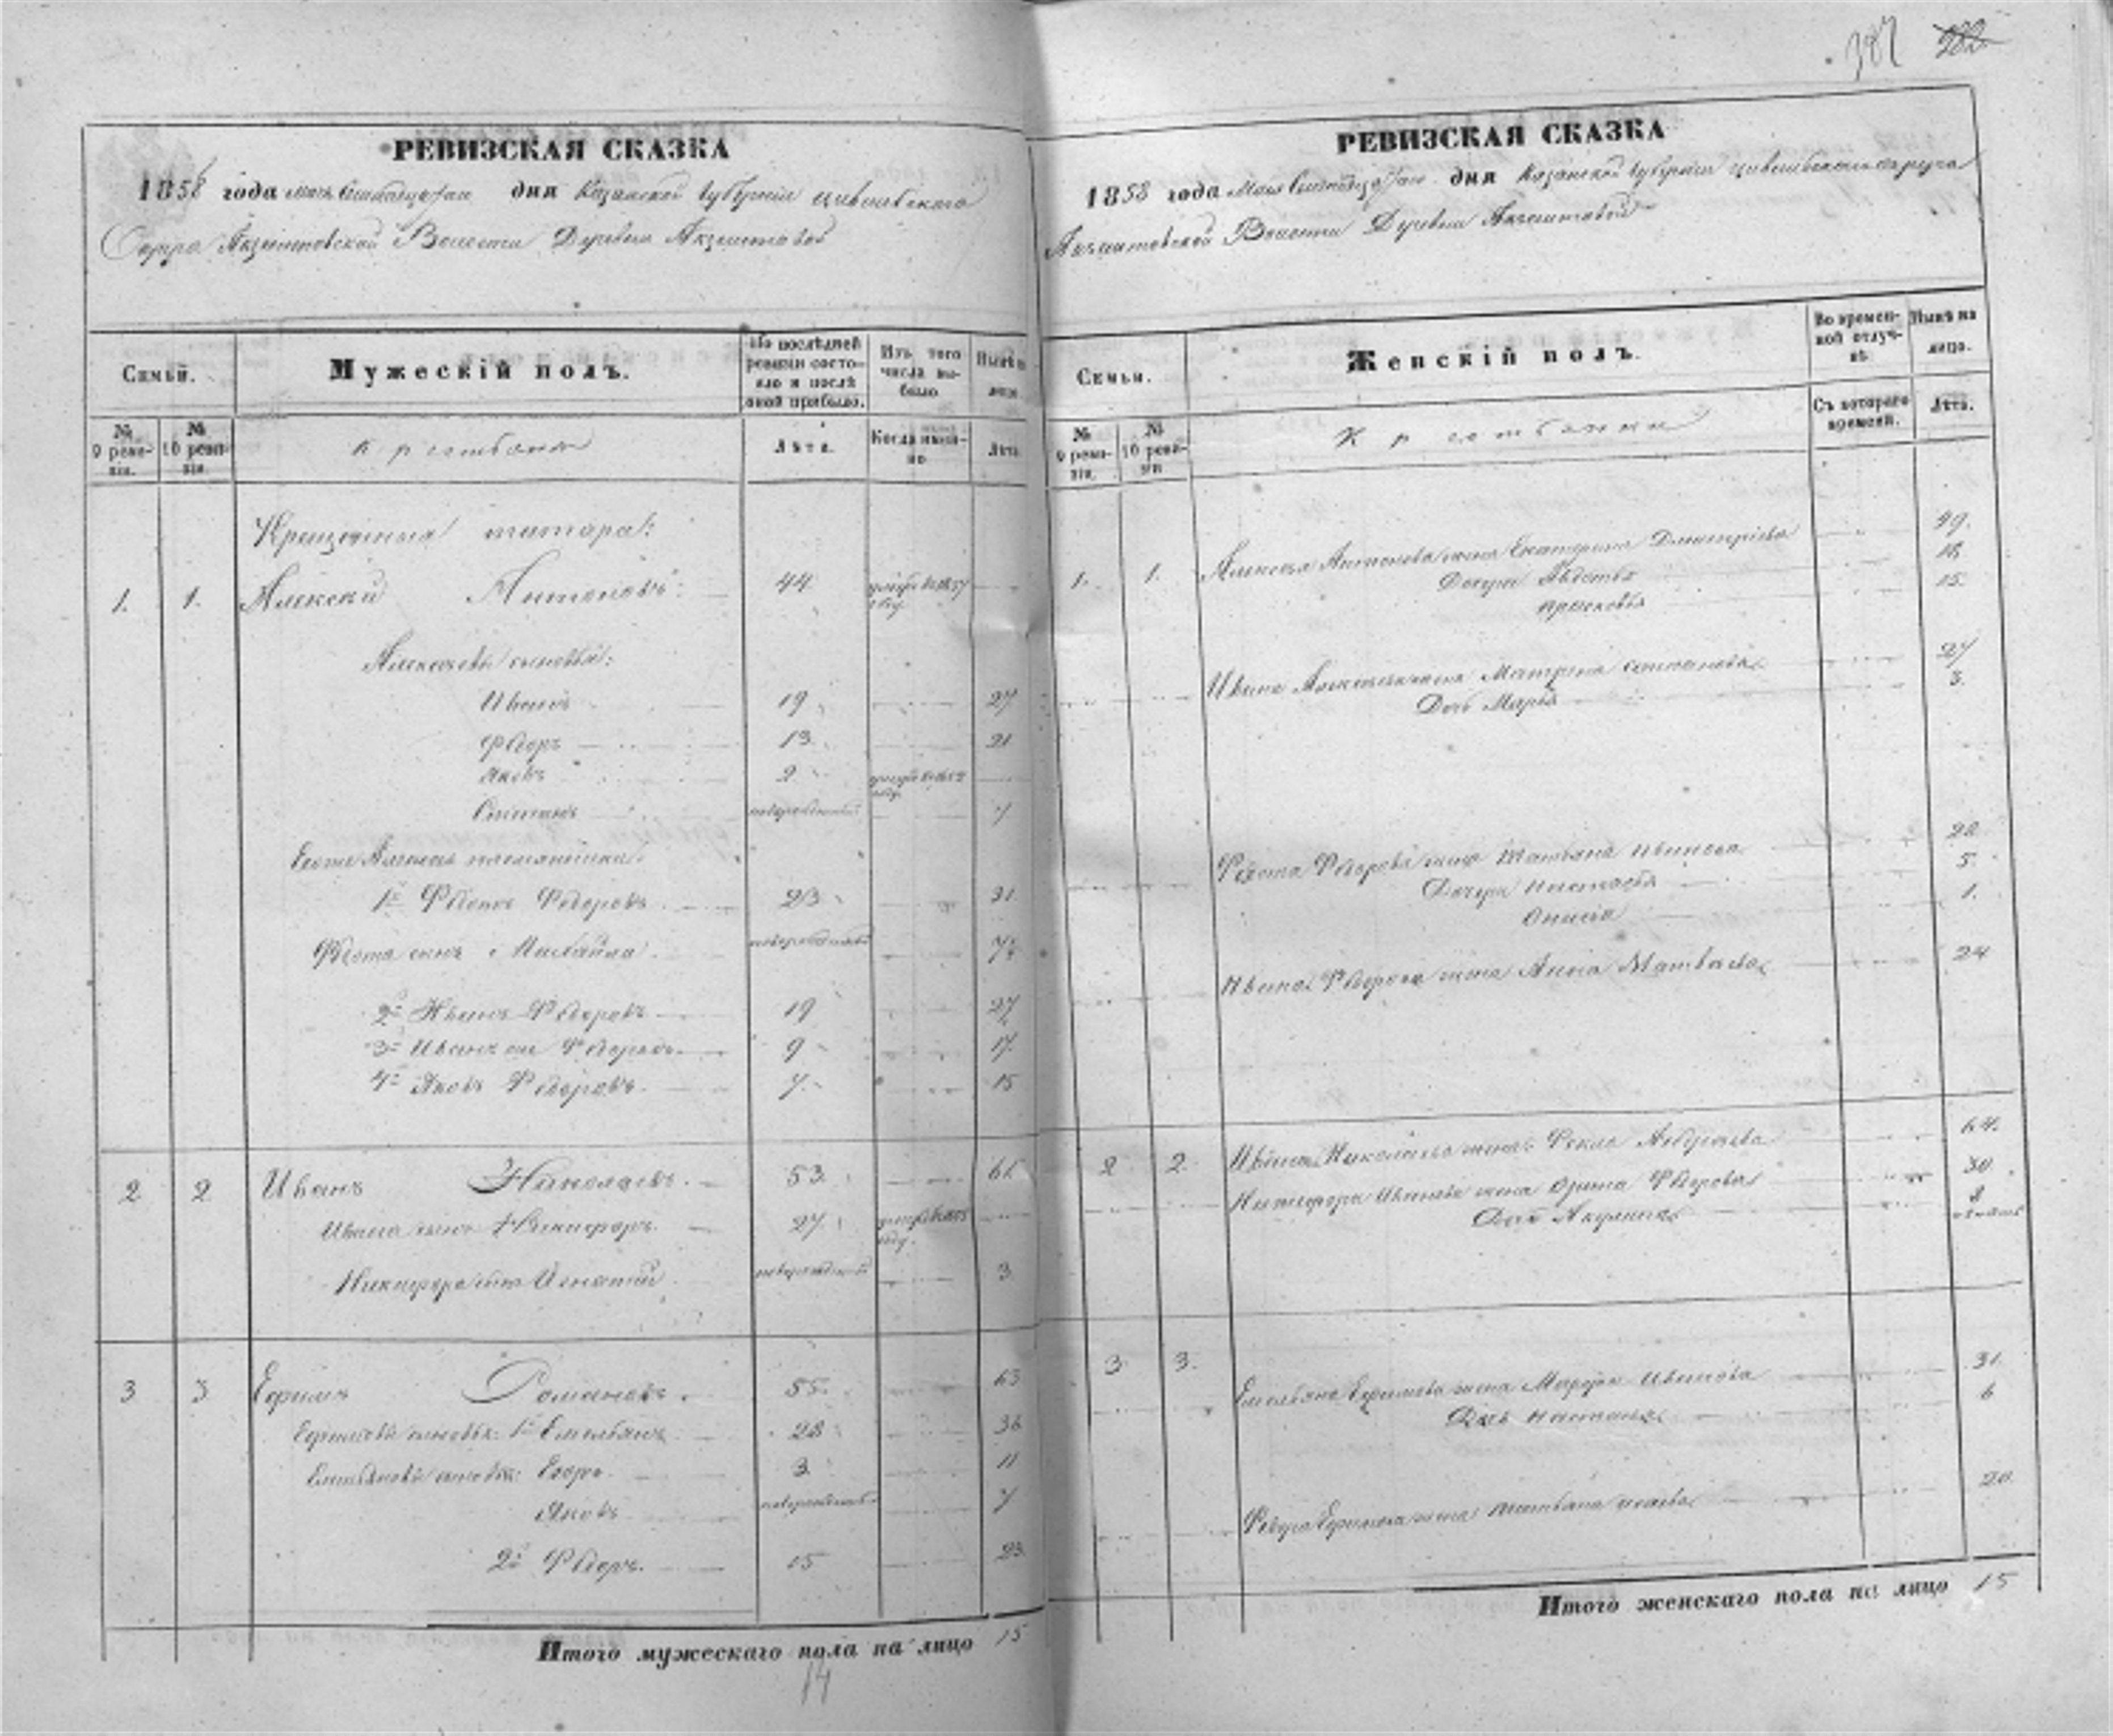 387 282
РЕВИЗСКАЯ СКАЗКА
1858 года дня Казанской Губернии Цивильскаго
Округа Волости Деревни
Семьи.
Мужескій полъ.
По послѣдней ревизіи состояло и послѣ оной прибыло.
Изъ того числа выбыло
Нынѣ на лицо.
№ 9 ревизіи.
№ 10 ревизіи.
Крестьяне
Лѣта.
Когда именно
Лѣта.
Крещеныя татара:
1. 1. Алексѣй Антоновъ 44
Алексѣевы сыновья:
Иванъ 19 27
Ѳедоръ 13 21
Яковъ 2
Степанъ новорожденный 7
Его же Алексѣя племянники:
1й Ѳедотъ Ѳедоровъ 23 31
Ѳедота сынъ Михайла новорожденный
2й Иванъ Ѳедоровъ 19 27
3й Иванъ же Ѳедоровъ 9 17
4й Яковъ Ѳедоровъ 7 15
2 2 Иванъ Николаевъ 53
Ивана сынъ Никифоръ 27
Никифора сынъ Игнатій новорожденный 3
3 3 Ефимъ Романовъ 55 63
Ефимовы сыновья: 1й Емельянъ 28 36
Емельяновы сыновья: Егоръ 3 11
Яковъ новорожденный 7
2й Ѳедоръ 15 23
Итого мужескаго пола на лицо 15
14
РЕВИЗСКАЯ СКАЗКА
1858 года дня Казанской Губерніи Цивильскаго округа
Волости Деревни
Семьи.
Женскій полъ.
Во временной отлучкѣ.
Нынѣ на лицо.
№ 9 ревизіи.
№ 10 ревизіи
Крестьянки
Съ котораго времени.
Лѣта.
1. 1. Алексѣя Антонова жена Екатерина Дмитріева 49.
Дочери Авдотья 18
Прасковья 15.
Ивана Алексѣева жена Матрена 27
Дочь Марья 3.
Ѳедота Ѳедорова жена Татьяна Иванова 28
Дочери Настасья 5.
Анисья 1.
Ивана Ѳедорова жена Анна Матвѣева 24
2 2 Ивана Николаева жена Ѳекла Андреева 64.
Никифора Иванова жена Орина Ѳедорова 30
Дочь Акулина
3 3. Емельяна Ефимова жена Марѳа Иванова 31
Дочь Наталья 6
Ѳедора Ефимова жена Татьяна Исаева 20
Итого женскаго пола на лицо 15